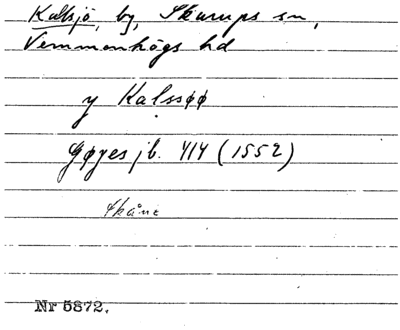 Kalsjö, by, Skurups sn,
Vemmenhögs hd
y Kalssøø
Gøyes jb. 414 (1552)
Skåne
Nr 5872.